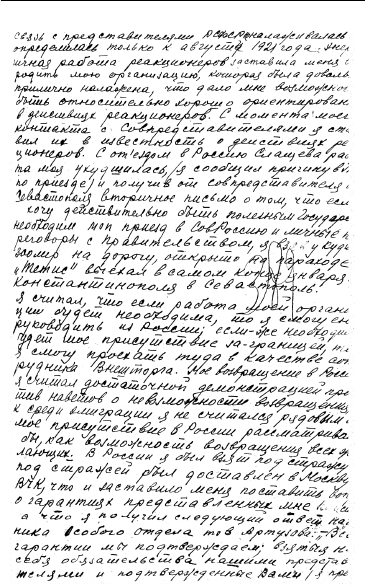 связь с представителями РСФСР налаживалась
определилась только к августу 1921 года.
ичная работа реакционеров заставила меня
родить мою организацию, которая была доволь
прилично налажена, что дало мне возможнос
быть относительно хорошо ориентирован
в действиях реакционеров. С момента моег
контакта с Совпредставителями я ста
вил их в известность о действиях ре
ционеров. С отъездом в Россию Слащева раб
та моя ухудшилась, (я сообщил причину
по приезде) и получив от совпредставителя
Севастополя вторичное письмо о том, что есл
хочу действительно быть полезным Государс
необходим мой приезд в СовРоссию и личные п
реговоры с правительством, я
на дорогу, открыто на пароходе
"Метис" выехал в самом конце января
Константинополя в Севастополь.
Я считал, что если работа моей органи
ции будет необходима, то я смогу ею
руководить из России; если-же необходи
будет мое присутствие за-границей, т
я смогу проехать туда в качестве сот
рудника Внешторга. Мое возвращение в Росс
я считал достаточной демонстрацией про
тив наветов о невозможности возвращения
к среди эмиграции я не считался рядовым и
мое присутствие в России рассматрива
бы, как возможность возвращения всех
лающих. В России я был взят под стражу
под стражей был доставлен в Москву
ВЧК, что и заставило меня поставить
о гарантиях представленных мне
а что я получил следующий ответ нач
ника Особого отдела тов Артузова: "Все
гарантии мы подтверждаем; взятые н
себя обязательства нашими представ
телями и подтвержденные Вами